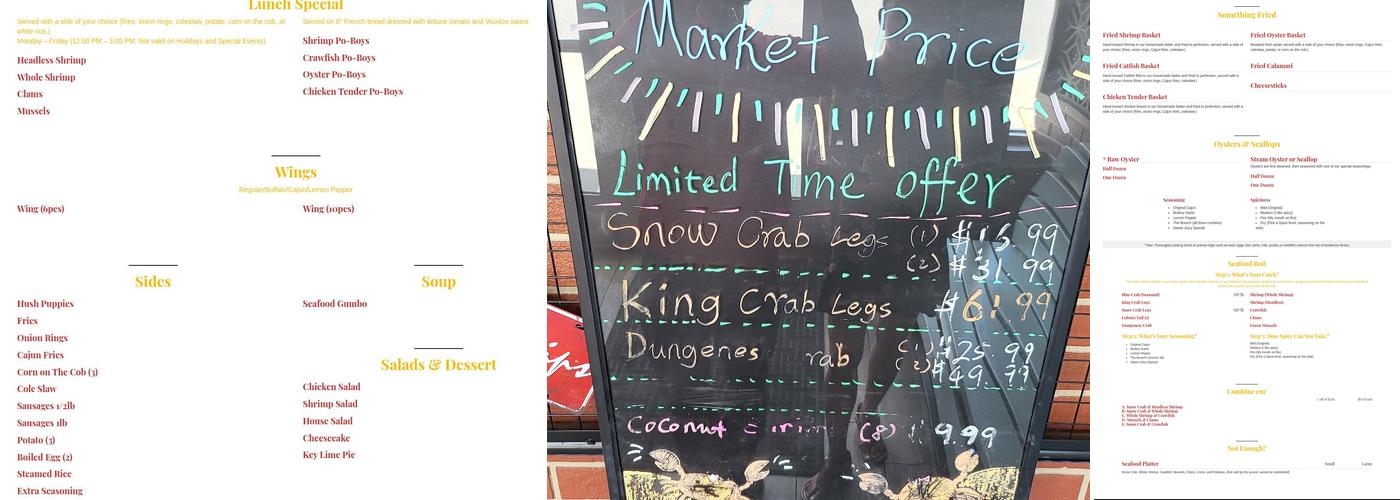 Lunch Special
Served with a side of your choice (fries, onion rings, coleslaw, potato, corn on the cob, or
white rice.)
Monday – Friday (12:00 PM – 3:00 PM; Not valid on Holidays and Special Events)
Headless Shrimp
Whole Shrimp
Clams
Mussels
Served on 6" French bread dressed with lettuce tomato and Voodoo sauce
Shrimp Po-Boys
Crawfish Po-Boys
Oyster Po-Boys
Chicken Tender Po-Boys
Wings
Regular/Buffalo/Cajun/Lemon Pepper
Wing (6pcs)
Wing (10pcs)
Sides
Hush Puppies
Fries
Onion Rings
Cajun Fries
Corn on The Cob (3)
Cole Slaw
Sausages 1/2lb
Sausages 1lb
Potato (3)
Boiled Egg (2)
Steamed Rice
Extra Seasoning
Soup
Seafood Gumbo
Salads & Dessert
Chicken Salad
Shrimp Salad
House Salad
Cheesecake
Key Lime Pie
Market Price
Limited Time offer
Snow Crab Legs (1) $15.99
(2) $31.99
King Crab Legs $61.99
Dungenes rab (1) $25.99
(2) $49.99
Coconut (8) $9.99
Something Fried
Fried Shrimp Basket
Hand tossed Shrimp in our homemade batter and fried to perfection, served with a side of
your choice (fries, onion rings, Cajun fries, coleslaw.)
Fried Catfish Basket
Hand tossed Catfish fillet in our homemade batter and fried to perfection, served with a
side of your choice (fries, onion rings, Cajun fries, coleslaw.)
Chicken Tender Basket
Hand tossed chicken breast in our homemade batter and fried to perfection, served with a
side of your choice (fries, onion rings, Cajun fries, coleslaw.)
Fried Oyster Basket
Breaded fried oyster served with a side of your choice (fries, onion rings, Cajun fries,
coleslaw, potato, or corn on the cob.)
Fried Calamari
Cheesesticks
Oysters & Scallops
* Raw Oyster
Half Dozen
One Dozen
Steam Oyster or Scallop
Oysters are first steamed, then seasoned with one of our special seasonings.
Half Dozen
One Dozen
Seasoning
Original Cajun
Buttery Garlic
Lemon Pepper
The Boom!! (all three combine)
Sweet Juicy Special
Spiciness
Mild (Original)
Medium (I like spicy)
Fire (My mouth on fire)
Dry (Pick a Spice level, seasoning on the
side)
* Raw: Thoroughly cooking foods of animal origin such as beef, eggs, fish, lamb, milk, poultry or shellfish reduces the risk of foodborne illness.
Seafood Boil
Step 1: What's Your Catch?
Blue Crab (Seasonal) MP/lb
King Crab Legs
Snow Crab Legs MP/lb
Lobster Tail (2)
Dungeness Crab
Shrimp (Whole Shrimp)
Shrimp (Headless)
Crawfish
Clams
Green Mussels
Step 2: What's Your Seasoning?
Original Cajun
Buttery Garlic
Lemon Pepper
The Boom!! (mix them all)
Sweet Juicy Special
Step 3: How Spicy Can You Take?
Mild (Original)
Medium (I like spicy)
Fire (My mouth on fire)
Dry (Pick a Spice level, seasoning on the side)
Combine em'
A. Snow Crab & Headless Shrimp
B. Snow Crab & Whole Shrimp
C. Whole Shrimp & Crawfish
D. Mussels & Clams
E. Snow Crab & Crawfish
Not Enough?
Seafood Platter Small Large
Snow Crab, Whole Shrimp, Crawfish, Mussels, Clams, Corns, and Potatoes. (Not sold by the pound, cannot be substituted)